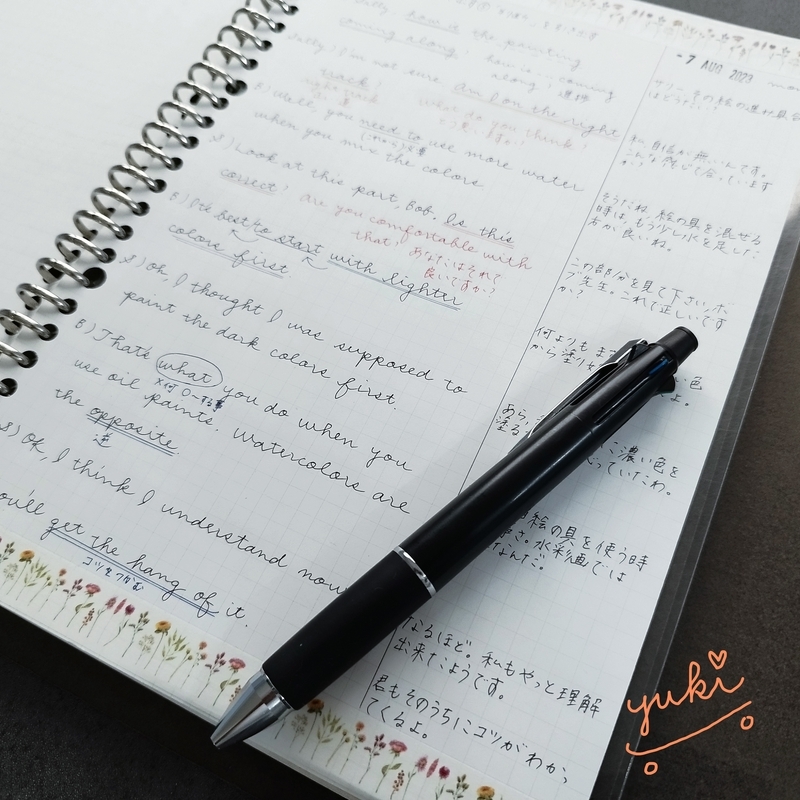 how is the painting
coming along? how is ... coming
along? 進捗
Sally) I'm not sure. Am I on the right
track?
right track
what do you think?
どう思いますか?
B) Well, you need to use more water
when you mix the colors
S) Look at this part, Bob. Is this
correct? are you comfortable with
that? あなたはそれで
良いですか?
B) It's best to start with lighter
colors first.
S) Oh, I thought I was supposed to
paint the dark colors first.
B) That's what you do when you
use oil paints. Watercolors are
the opposite
逆
S) Ok, I think I understand now
you'll get the hang of it.
コツをつかむ
-7 AUG 2023
サリー、その絵の進み具合
はどうだい?
私、自信が無いんです。
こんな感じで合っています
か?
そうだね、絵の具を混ぜる
時は、もう少し水を足した
方が良いね。
この部分を見て下さい、ボ
ブ先生。これで正しいです
か?
何よりもまず
から塗り
い色
よ。
あら、
塗る
に濃い色を
っていたわ。
絵の具を使う時
さ。水彩画では
なんだ。
なるほど。私もやっと理解
出来たようです。
君もそのうちにコツがわかっ
てくるよ。
yuki